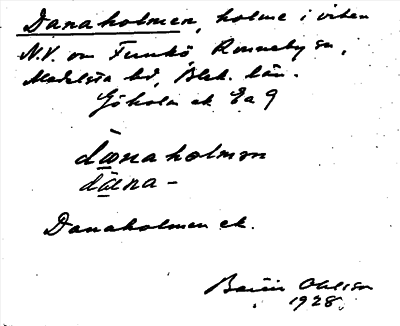 Danaholmen, holme i viken
N.V. om Funkö, Ronneby sn,
Medelsta hd, Blek. län.
Sjökala ek Ea 9
dænaholmen
dæna-
Danaholmen ek.
Bertil Ohlsson
1928.